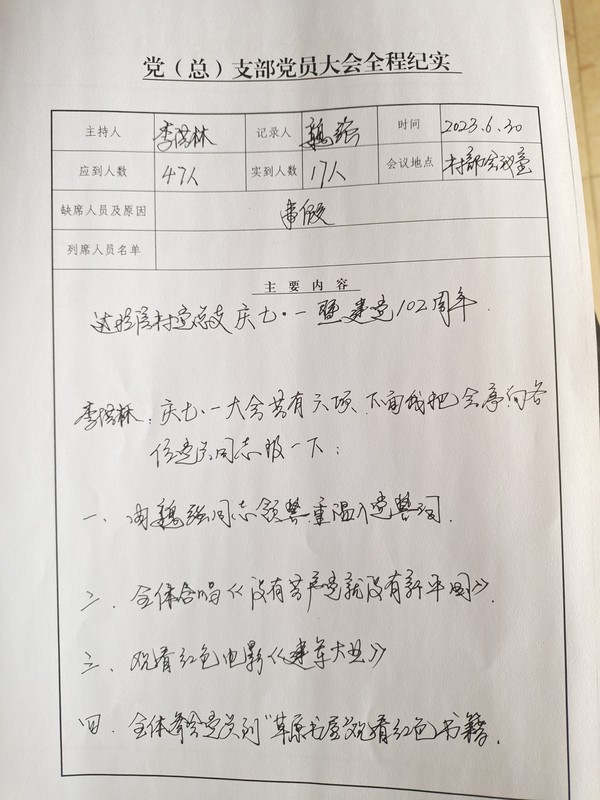 党（总）支部党员大会全程纪实
主持人 李洪林 记录人 魏强 时间 2023.6.30
应到人数 47人 实到人数 17人 会议地点 村部会议室
缺席人员及原因 事假
列席人员名单
主要内容
村党总支庆七·一暨建党102周年.
李洪林：庆七·一大会共有六项，下面我把会序向各
位党员同志报一下：
一、由魏强同志领誓重温入党誓词.
二、全体合唱《没有共产党就没有新中国》.
三、观看红色电影《建军大业》
四、全体参会党员到"草原书屋"观看红色书籍.